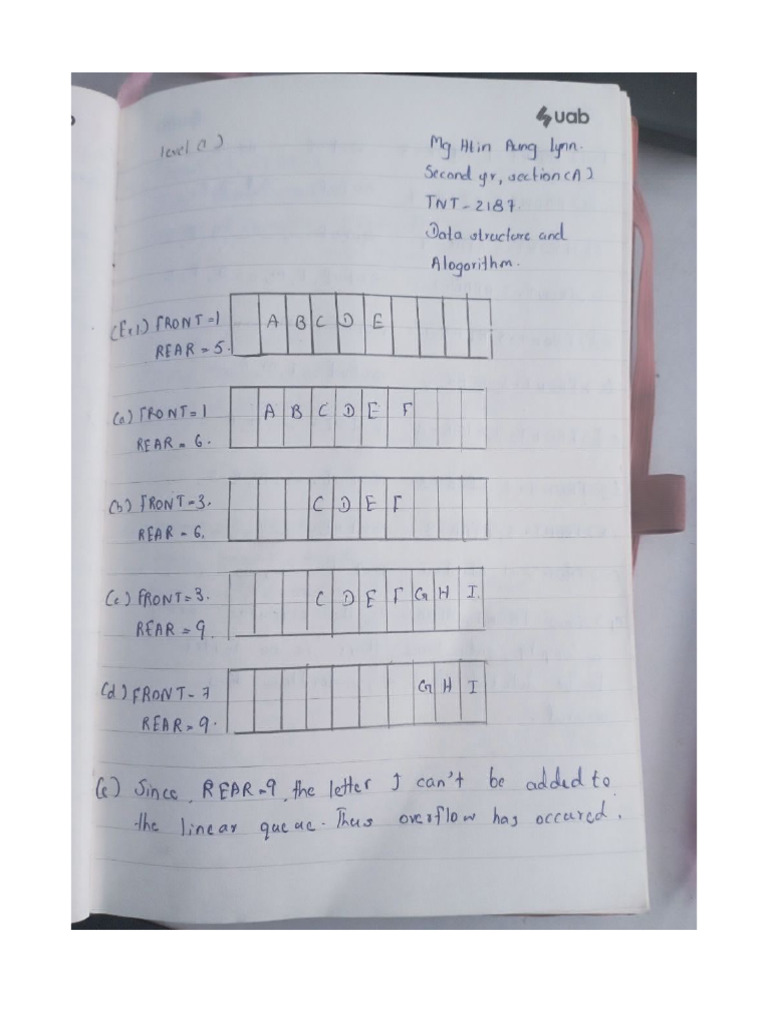 uab
level (1)
Mg Htin Aung Lynn.
Second yr, section (A)
TNT - 2187.
Data structure and
Alogorithm.
(Ex1) FRONT = 1
REAR = 5.
A B C D E
(a) FRONT = 1
REAR = 6.
A B C D E F
(b) FRONT = 3.
REAR = 6.
C D E F
(c) FRONT = 3.
REAR = 9
C D E F G H I
(d) FRONT = 7
REAR = 9.
G H I
(e) Since REAR = 9, the letter J can't be added to
the linear queue. Thus overflow has occured.